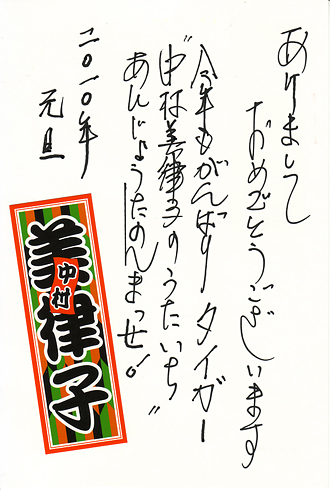 あけまして
おめでとうございます
今年もがんばりータイガー
"中村美律子のうたいち"
あんじょうたのんまっせ!
二〇一〇年
元旦
中村
美律子